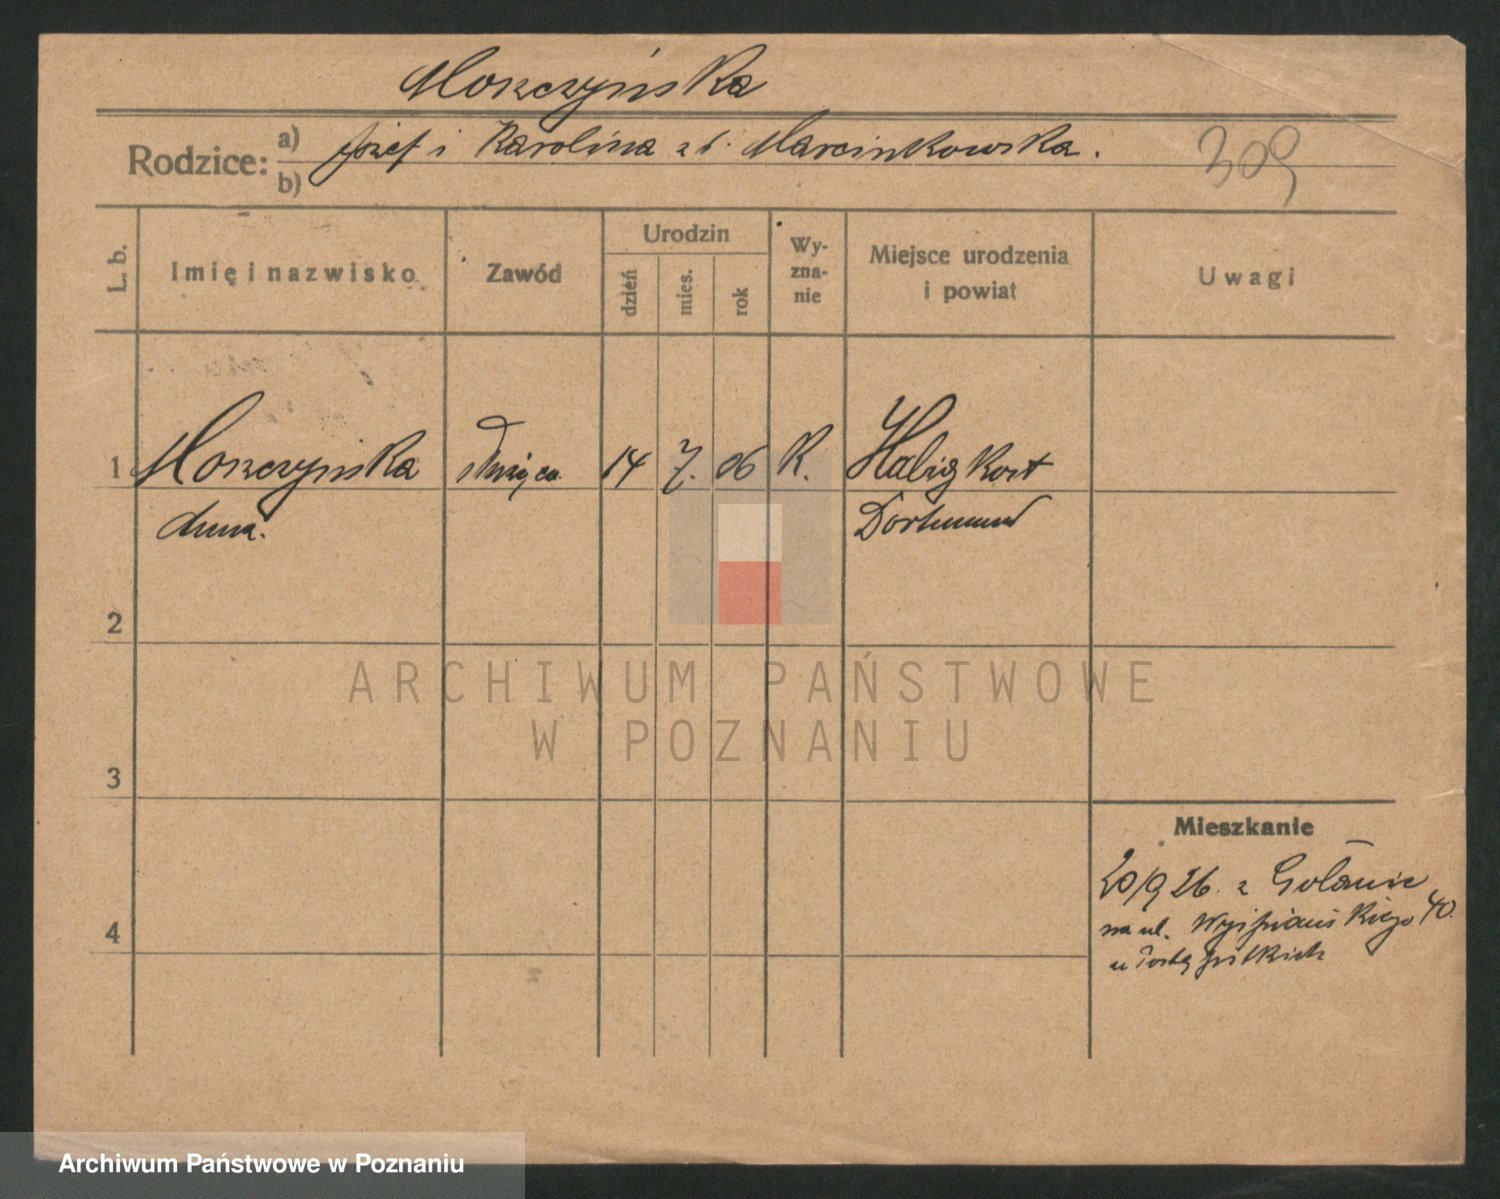 Morzczyńska
Rodzice: a) Józef i Karolina z d. Marcinkowska.
b)
309
L. b. Imię i nazwisko Zawód Urodzin dzień mies. rok Wyzna-nie Miejsce urodzenia i powiat Uwagi
1 Morzczyńska służąca. 14 7. 06 R. Habigkorst
Anna. Dortmund
2
ARCHIWUM PAŃSTWOWE
W POZNANIU
3
Mieszkanie
20/9 26. z Gołańcz
4 na ul. Wyspiańskiego 40.
u
Archiwum Państwowe w Poznaniu